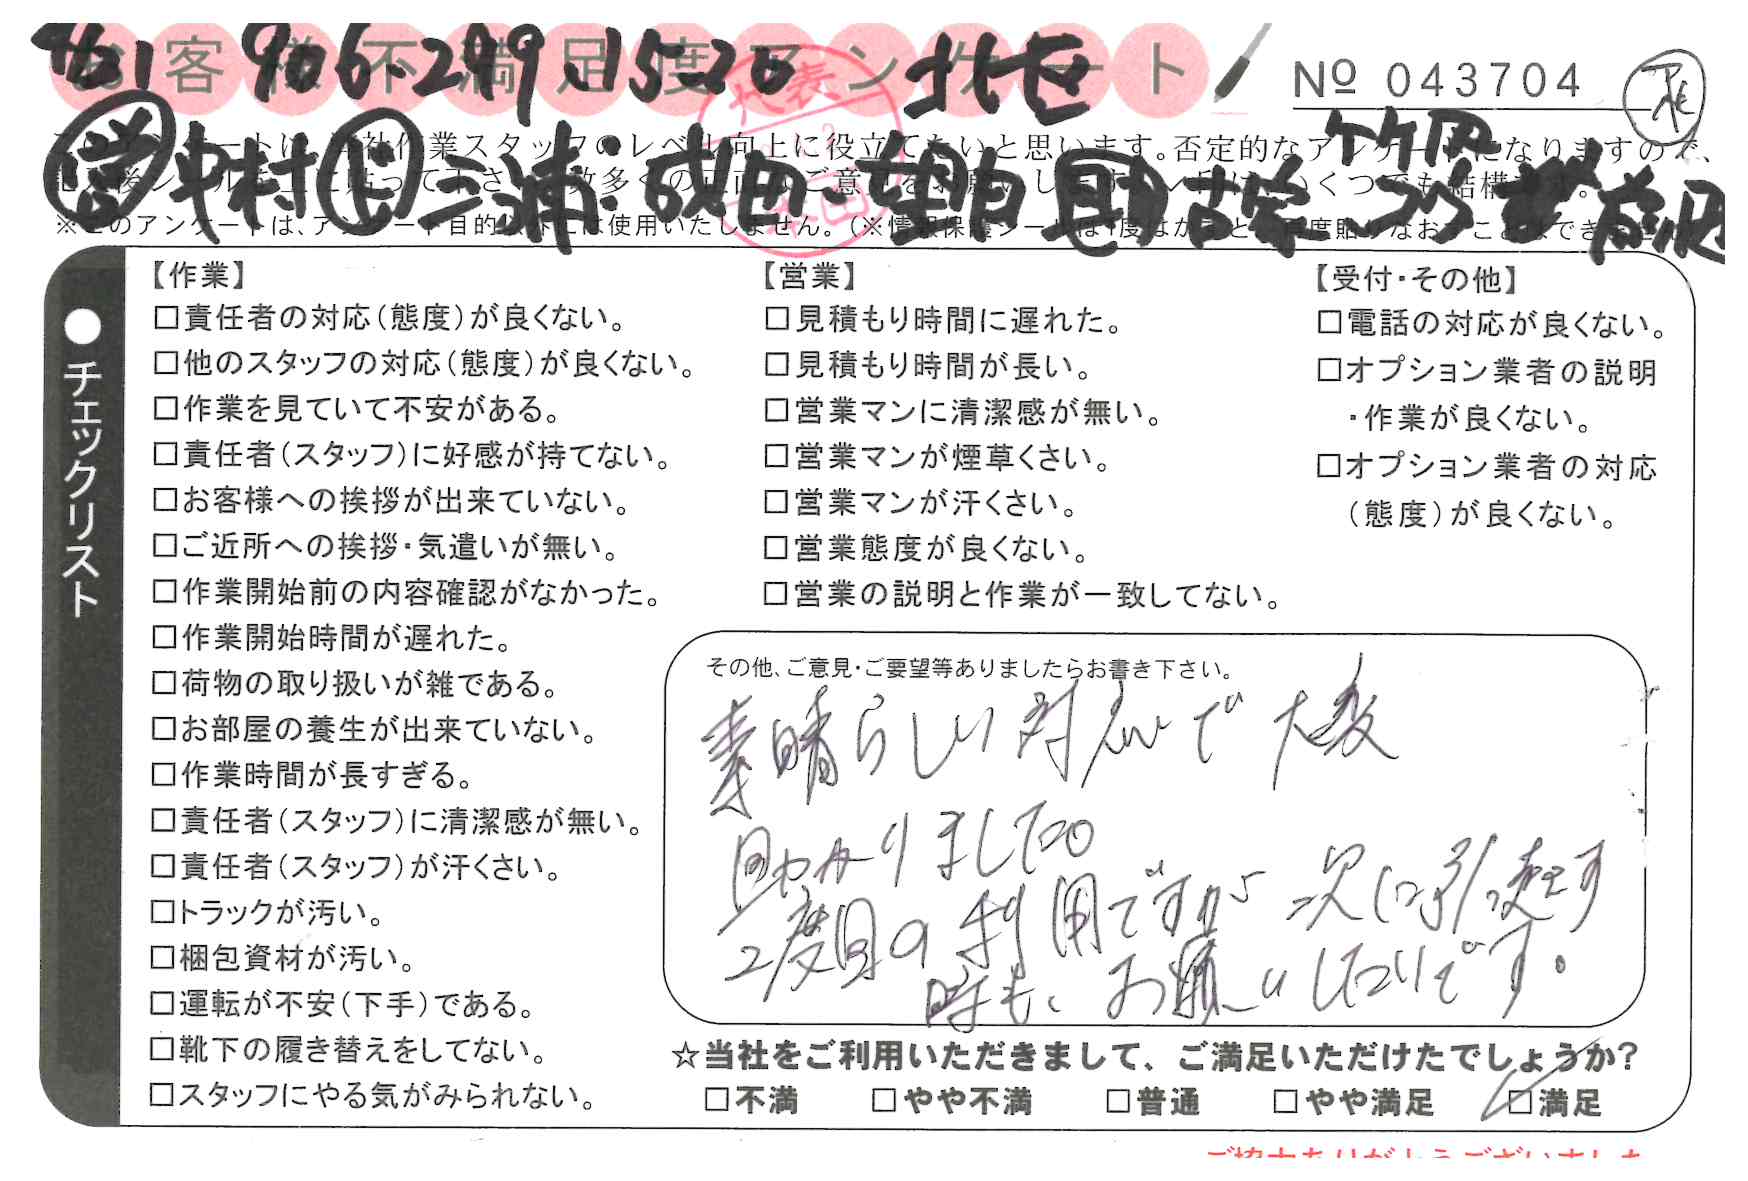 お客様不満足度アンケート
4/21 906-299 15-20 北区
№ 043704
営 中村 三浦
※このアンケートは、アンケート目的以外には使用いたしません。
チェックリスト
【作業】
□責任者の対応(態度)が良くない。
□他のスタッフの対応(態度)が良くない。
□作業を見ていて不安がある。
□責任者(スタッフ)に好感が持てない。
□お客様への挨拶が出来ていない。
□ご近所への挨拶・気遣いが無い。
□作業開始前の内容確認がなかった。
□作業開始時間が遅れた。
□荷物の取り扱いが雑である。
□お部屋の養生が出来ていない。
□作業時間が長すぎる。
□責任者(スタッフ)に清潔感が無い。
□責任者(スタッフ)が汗くさい。
□トラックが汚い。
□梱包資材が汚い。
□運転が不安(下手)である。
□靴下の履き替えをしてない。
□スタッフにやる気がみられない。
【営業】
□見積もり時間に遅れた。
□見積もり時間が長い。
□営業マンに清潔感が無い。
□営業マンが煙草くさい。
□営業マンが汗くさい。
□営業態度が良くない。
□営業の説明と作業が一致してない。
【受付・その他】
□電話の対応が良くない。
□オプション業者の説明
・作業が良くない。
□オプション業者の対応
(態度)が良くない。
その他、ご意見・ご要望等ありましたらお書き下さい。
素晴らしい対応で大変
助かりました。
2度目の利用ですが、次に引っ越す
時も、お願いしたいです。
☆当社をご利用いただきまして、ご満足いただけたでしょうか?
□不満 □やや不満 □普通 □やや満足 □満足
ご協力ありがとうございました